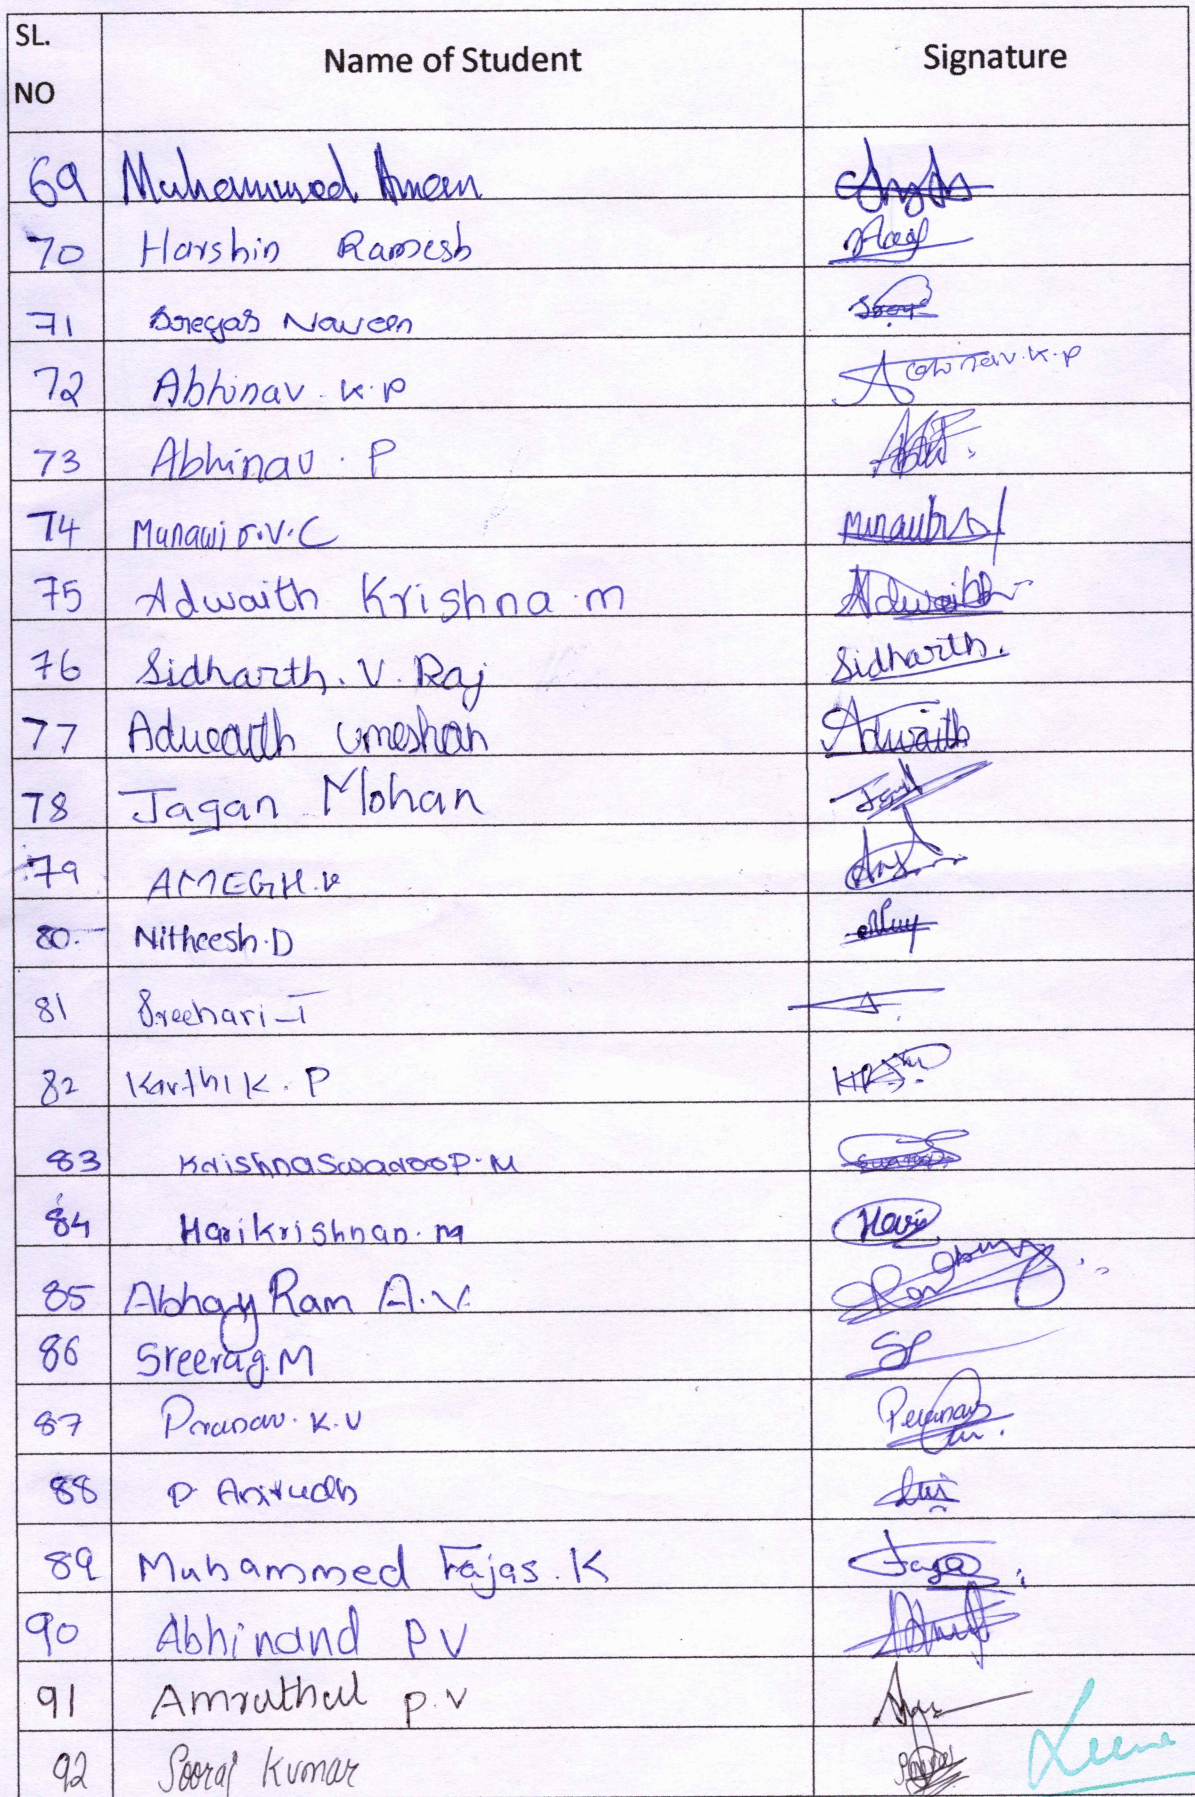 SL. NO Name of Student Signature
69 Muhammed Ameen
70 Harshin Ramesh
71 Sregas Naveen
72 Abhinav. K.P Abhinav.K.P
73 Abhinav. P
74 Munawir.V.C
75 Adwaith Krishna.m Adwaith
76 Sidharth. V. Raj Sidharth.
77 Adwaith Umeshan Adwaith
78 Jagan Mohan
79 AMEGH.V
80. Nitheesh.D
81 Sreehari T
82 Karthik. P
83 KrishnaSwaroop.M
84 Harikrishnan. m Hari
85 Abhay Ram A.V.
86 Sreerag.M
87 Pranav. K.V
88 P Anirudh
89 Muhammed Fajas. K
90 Abhinand P V
91 Amruthul P.V
92 Sooraj Kumar Leena